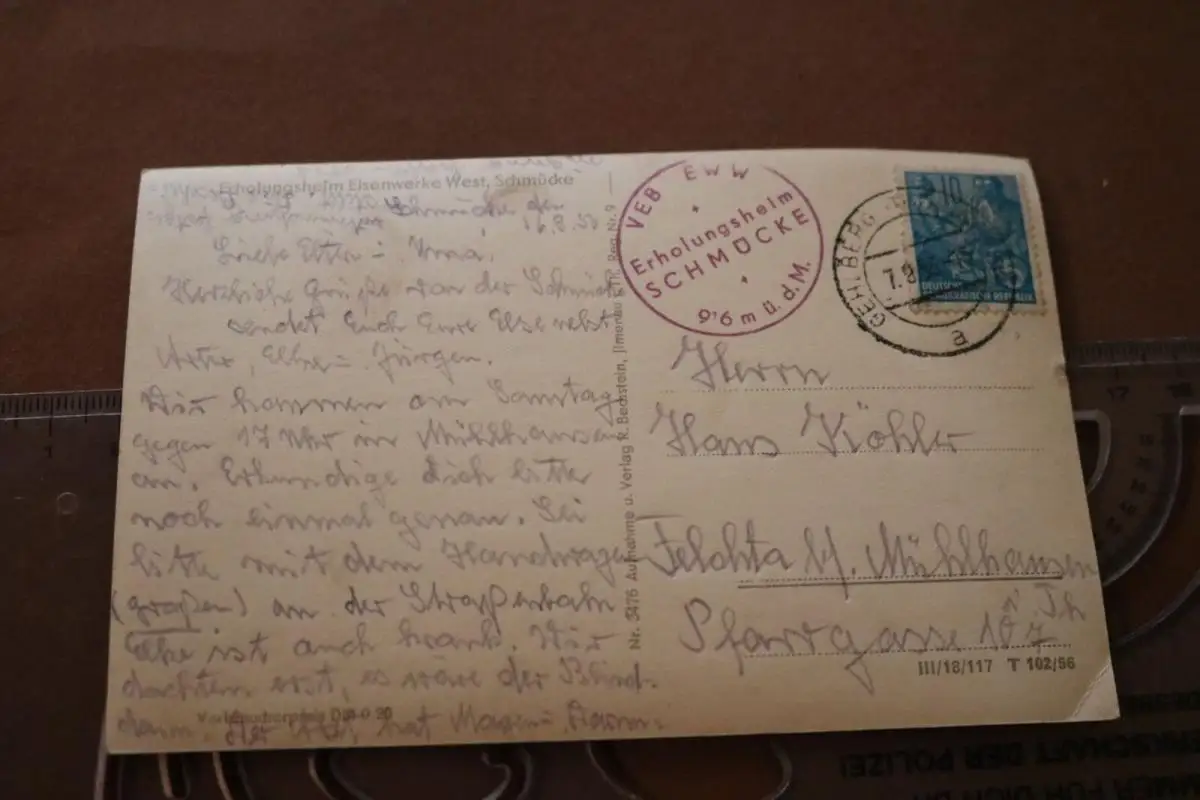 Erholungsheim Eisenwerke West, Schmücke
Schmücke, den
16.8.56
Liebe Eltern = Irma,
Herzliche Grüße von der Schmücke
sendet Euch Eure Else nebst
Artur, Elke = Jürgen.
Wir kommen am Samstag
gegen 17 Uhr in Mühlhausen
an. Erkundige dich bitte
noch einmal genau. Sei
bitte mit dem Handwagen
(großen) an der Straßenbahn
Elke ist auch krank. Wir
dachten erst, es wäre der Blind-
darm. Der hat Magen = Darm.
Verbraucherpreis DM 0.20
Nr. 3476 Aufnahme u. Verlag R. Bechstein, Ilmenau i. Th. Reg. Nr. 9
VEB EWW
Erholungsheim
SCHMÜCKE
916 m ü. d. M.
GEHLBERG
7.8
a
10
DEUTSCHE
DEMOKRATISCHE REPUBLIK
Herrn
Hans Köhler
Felchta b/. Mühlhausen
Pfarrgasse 107
i/Th
III/18/117 T 102/56
1
17
18
SCHAFT DER POLIZEI
IMMER FÜR DICH DA